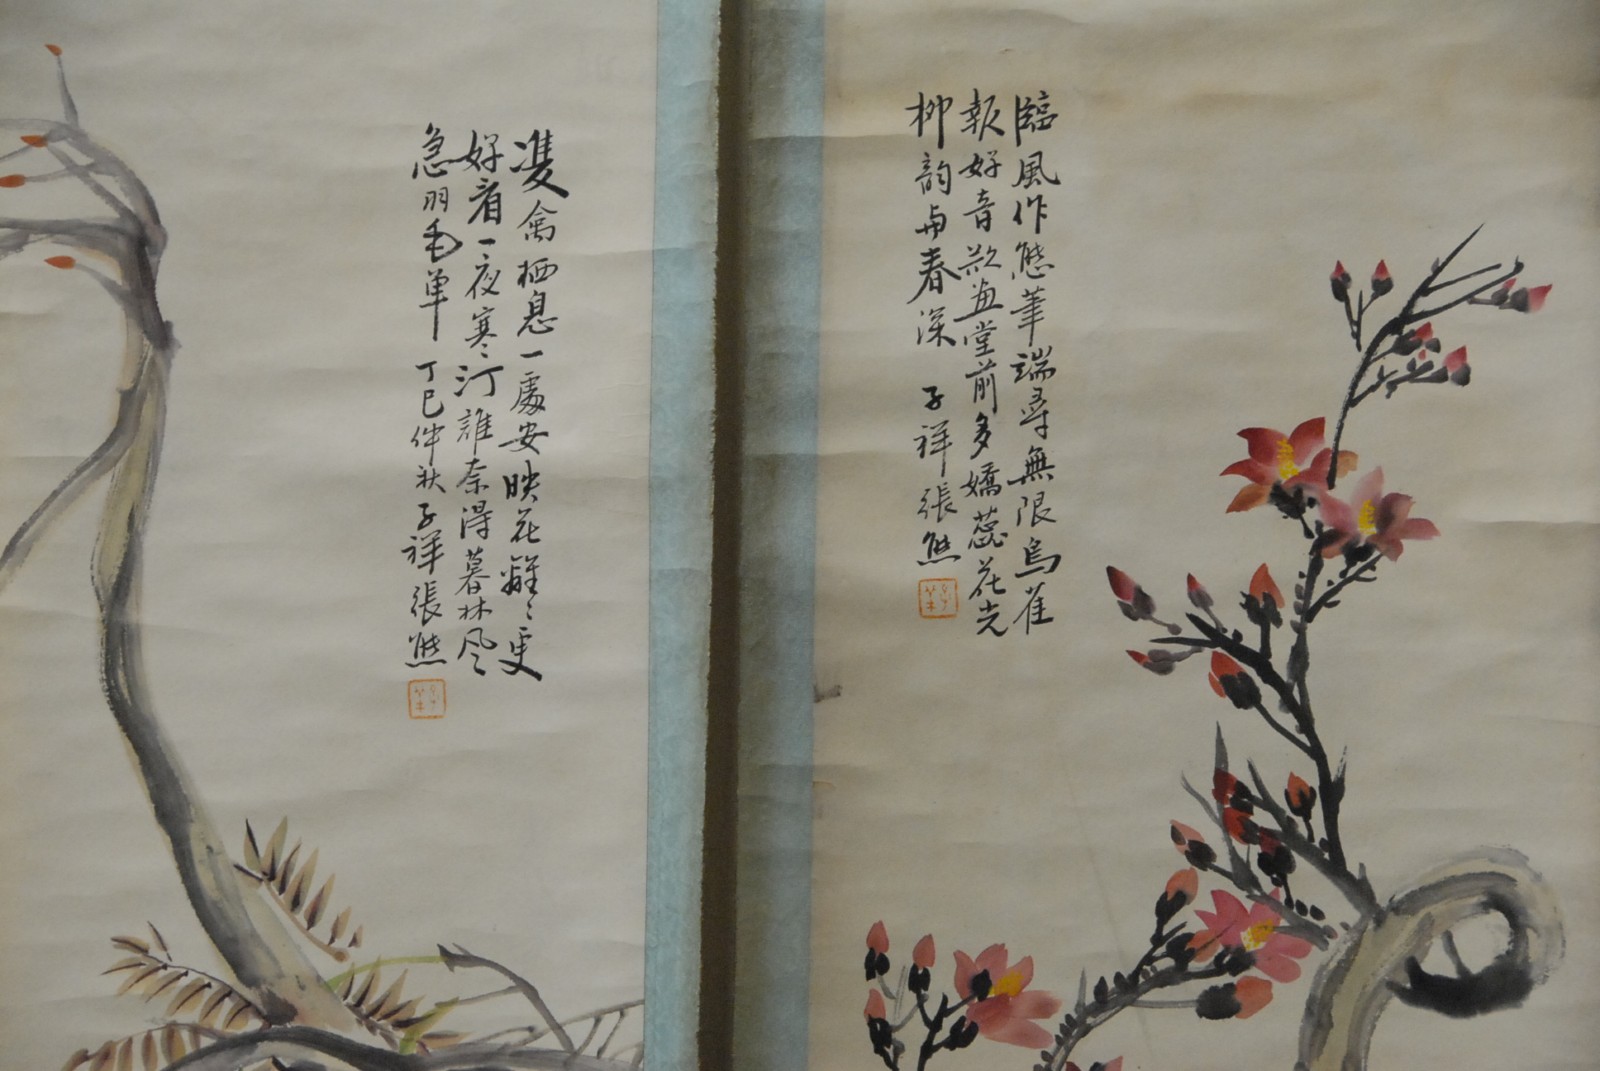 臨風作態筆端尋無限烏雀
報好音歡画堂前多嬌蕊花光
柳韵与春深
子祥張熊
雙禽栖息一處安映花離〻更
好看一夜寒汀誰奈得暮林风
急羽毛单
丁巳仲秋子祥張熊